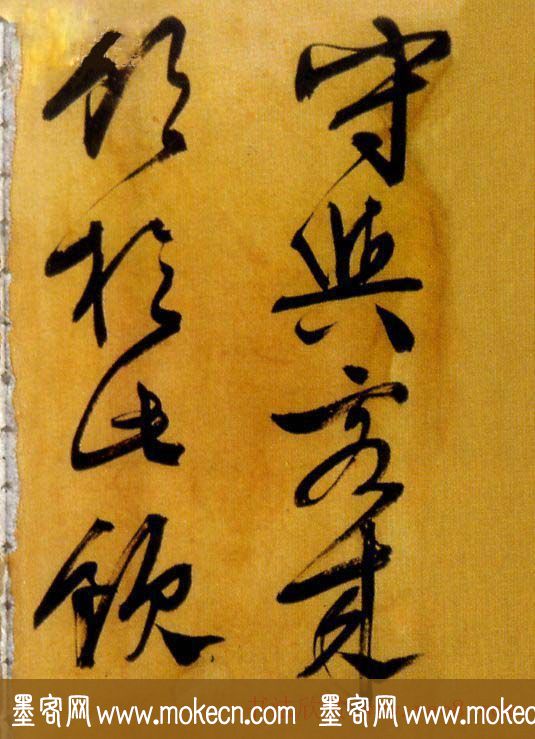 守與客來
飲於此飲
墨客网www.mokecn.com 墨客网www.mokecn.com